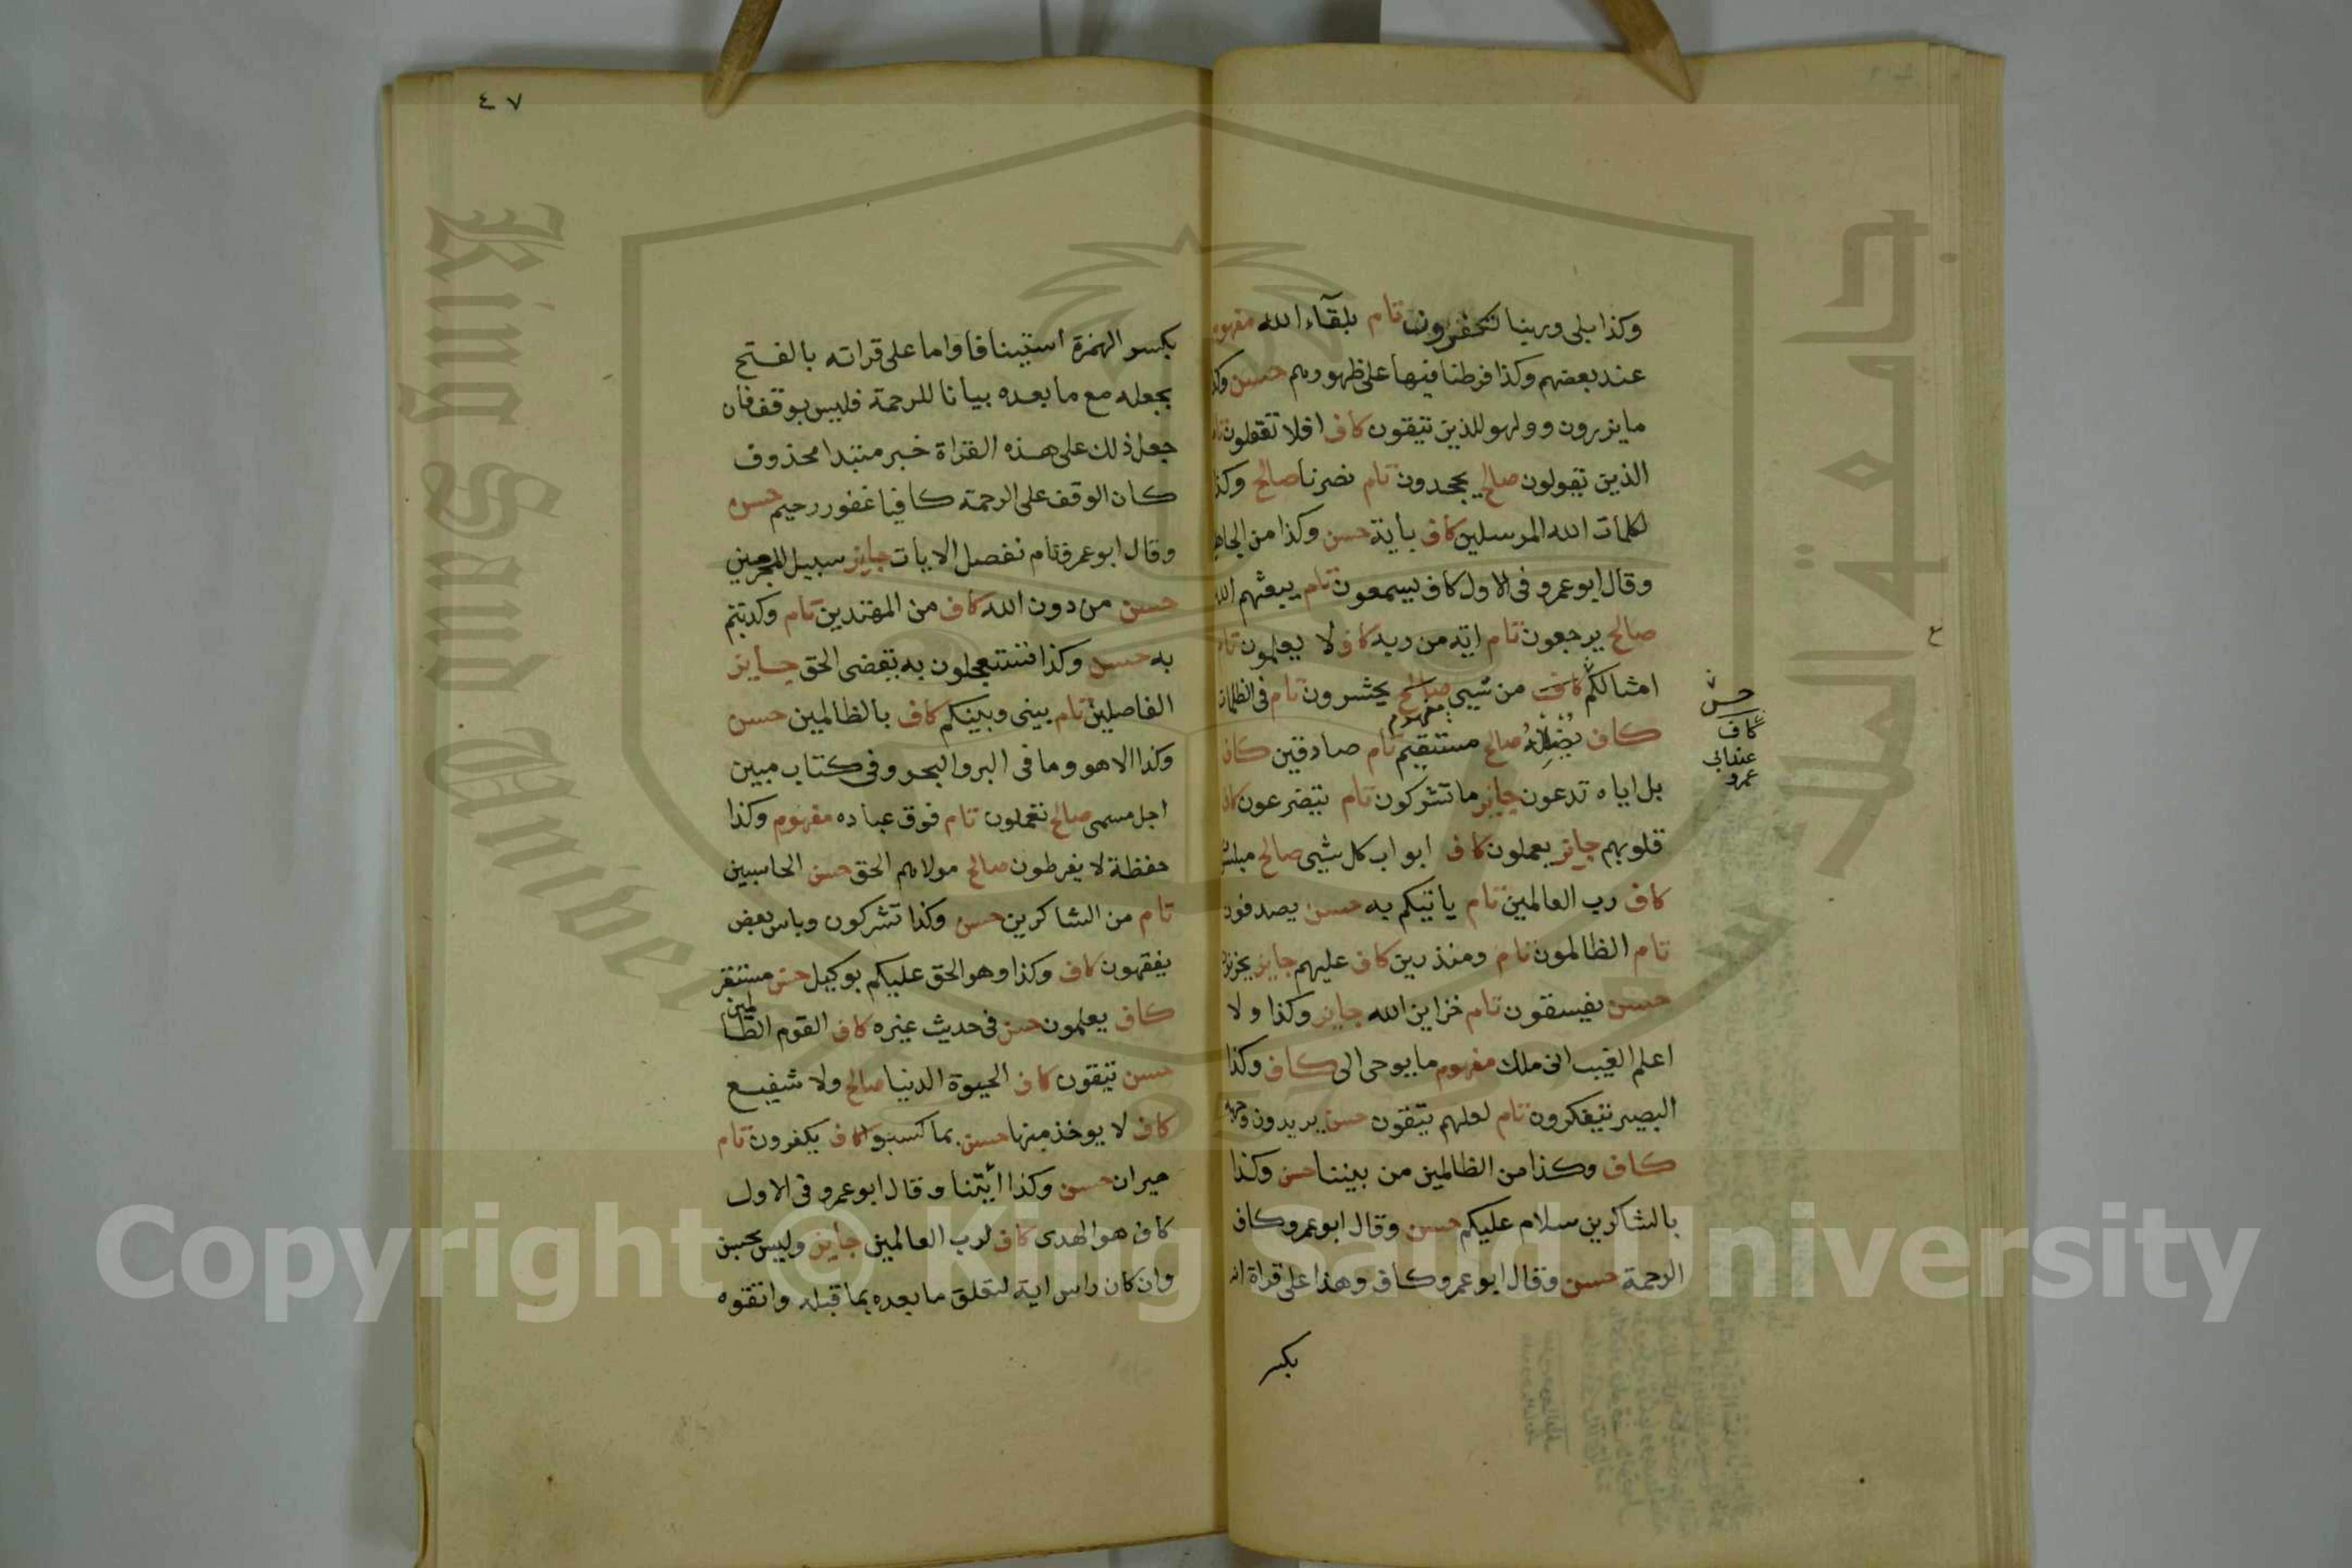 وكذا بلى وربنا تكفرون تام بلقاء الله مفهوم
عند بعضهم وكذا فرطنا فيها على ظهورهم حسن وكذا
ما يزرون و ولهو للذين يتقون كاف افلا تعقلون تام
الذين يقولون صالح يجحدون تام نصرنا صالح وكذا
لكلمات الله المرسلين كاف بأية حسن وكذا من الجاهلين
وقال ابو عمرو فى الاول كاف يسمعون تام يبعثهم الله
صالح يرجعون تام اية من ربه كاف لا يعلمون تام
امثالكم كاف من شيى صالح يحشرون تام فى الظلمات
مفهوم
كاف يضلله صالح مستقيم تام صادقين كاف
بل اياه تدعون جايز ما تشركون تام يتضرعون كاف
قلوبهم جايز يعملون كاف ابواب كل شيى صالح مبلسون
كاف رب العالمين تام ياتيكم به حسن يصدفون
تام الظالمون تام ومنذرين كاف عليهم جايز يحزنون
حسن يفسقون تام خزاين الله جايز وكذا ولا
اعلم الغيب انى ملك مفهوم ما يوحى الى كاف وكذا
البصير تتفكرون تام لعلهم يتقون حسن يريدون وجهه
كاف وكذا من الظالمين من بيننا حسن وكذا
بالشاكرين سلام عليكم حسن وقال ابو عمرو كاف
الرحمة حسن وقال ابو عمرو كاف وهذا على قراة انه
بكسر
حسن
كاف
عند ابى
عمرو
ع
٤٧
بكسر الهمزة استينافا واما على قراته بالفتح
بجعله مع ما بعده بيانا للرحمة فليس بوقف فان
جعل ذلك على هذه القراة خبر مبتدا محذوف
كان الوقف على الرحمة كافيا غفور رحيم حسن
وقال ابو عمرو تام نفصل الايات جايز سبيل المجرمين
حسن من دون الله كاف من المهتدين تام وكذبتم
به حسن وكذا تستعجلون به يقضى الحق جايز
الفاصلين تام بينى وبينكم كاف بالظالمين حسن
وكذا الا هو وما فى البر والبحر وفى كتاب مبين
اجل مسمى صالح تعملون تام فوق عباده مفهوم وكذا
حفظة لا يفرطون صالح مولاهم الحق حسن الحاسبين
تام من الشاكرين حسن وكذا تشركون وباس بعض
يفقهون كاف وكذا وهو الحق عليكم بوكيل حسن مستقر
كاف يعلمون حسن فى حديث غيره كاف القوم الظالمين
حسن يتقون كاف الحيوة الدنيا صالح ولا شفيع
كاف لا يوخذ منها حسن بما كسبوا كاف يكفرون تام
حيران حسن وكذا ائتنا وقال ابو عمرو فى الاول
كاف هو الهدى كاف لرب العالمين جايز وليس بحسن
وان كان راس اية لتعلق ما بعده بما قبله واتقوه
King Saud University
جامعة الملك سعود
Copyright © King Saud University